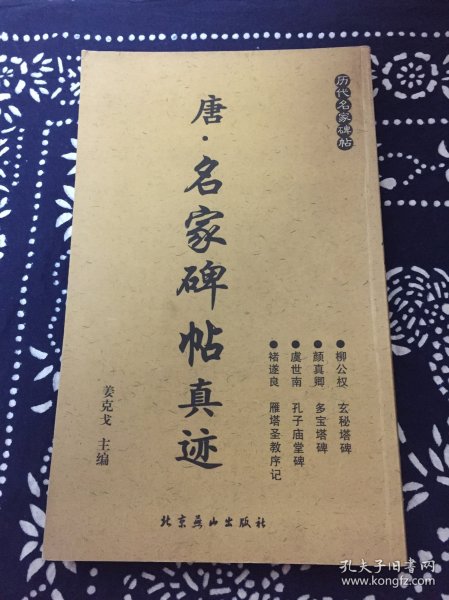 历代名家碑帖
唐·名家碑帖真迹
●柳公权 玄秘塔碑
●颜真卿 多宝塔碑
●虞世南 孔子庙堂碑
●褚遂良 雁塔圣教序记
姜克戈 主编
北京燕山出版社
孔夫子旧书网
www.kongfz.com